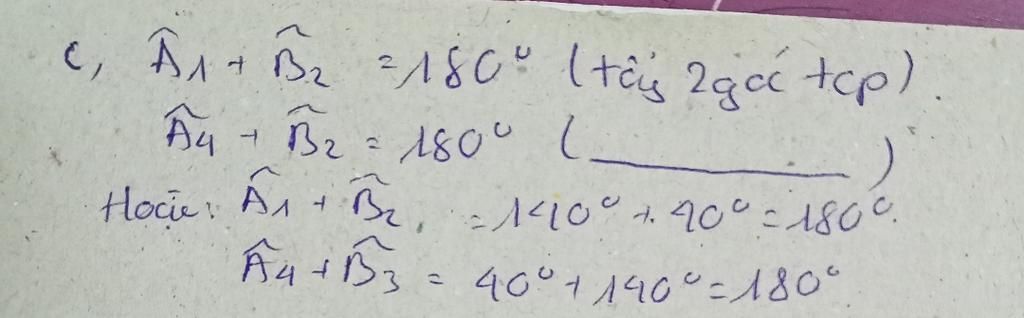 c, Â1 + B̂2 = 180° (t/c 2 góc tcp).
Â4 + B̂2 = 180° (___________)
Hoặc: Â1 + B̂2 = 140° + 40° = 180°.
Â4 + B̂3 = 40° + 140° = 180°